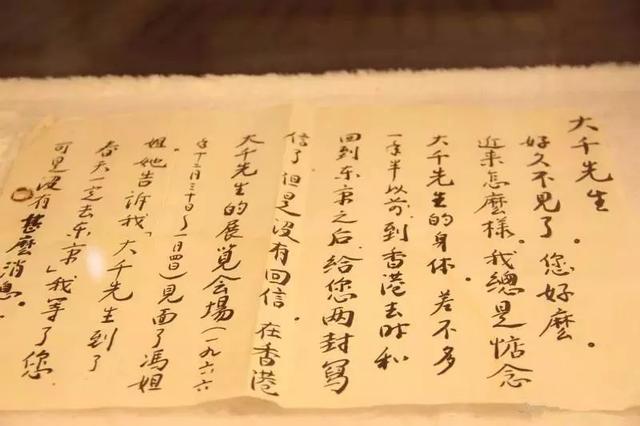 大千先生
好久不見了。您好麼。
近来怎麼樣。我總是惦念
大千先生的身体。差不多
一年半以前到香港去时和
回到东京之后给您两封写
信了但是没有回信。在香港
大千先生的展览会場(一九六六
年十二月三十日〜一日四日)見面了馮姐
姐她告訴我「大千先生到了
春天一定去东京」我等了您
可是没有甚麼消息。